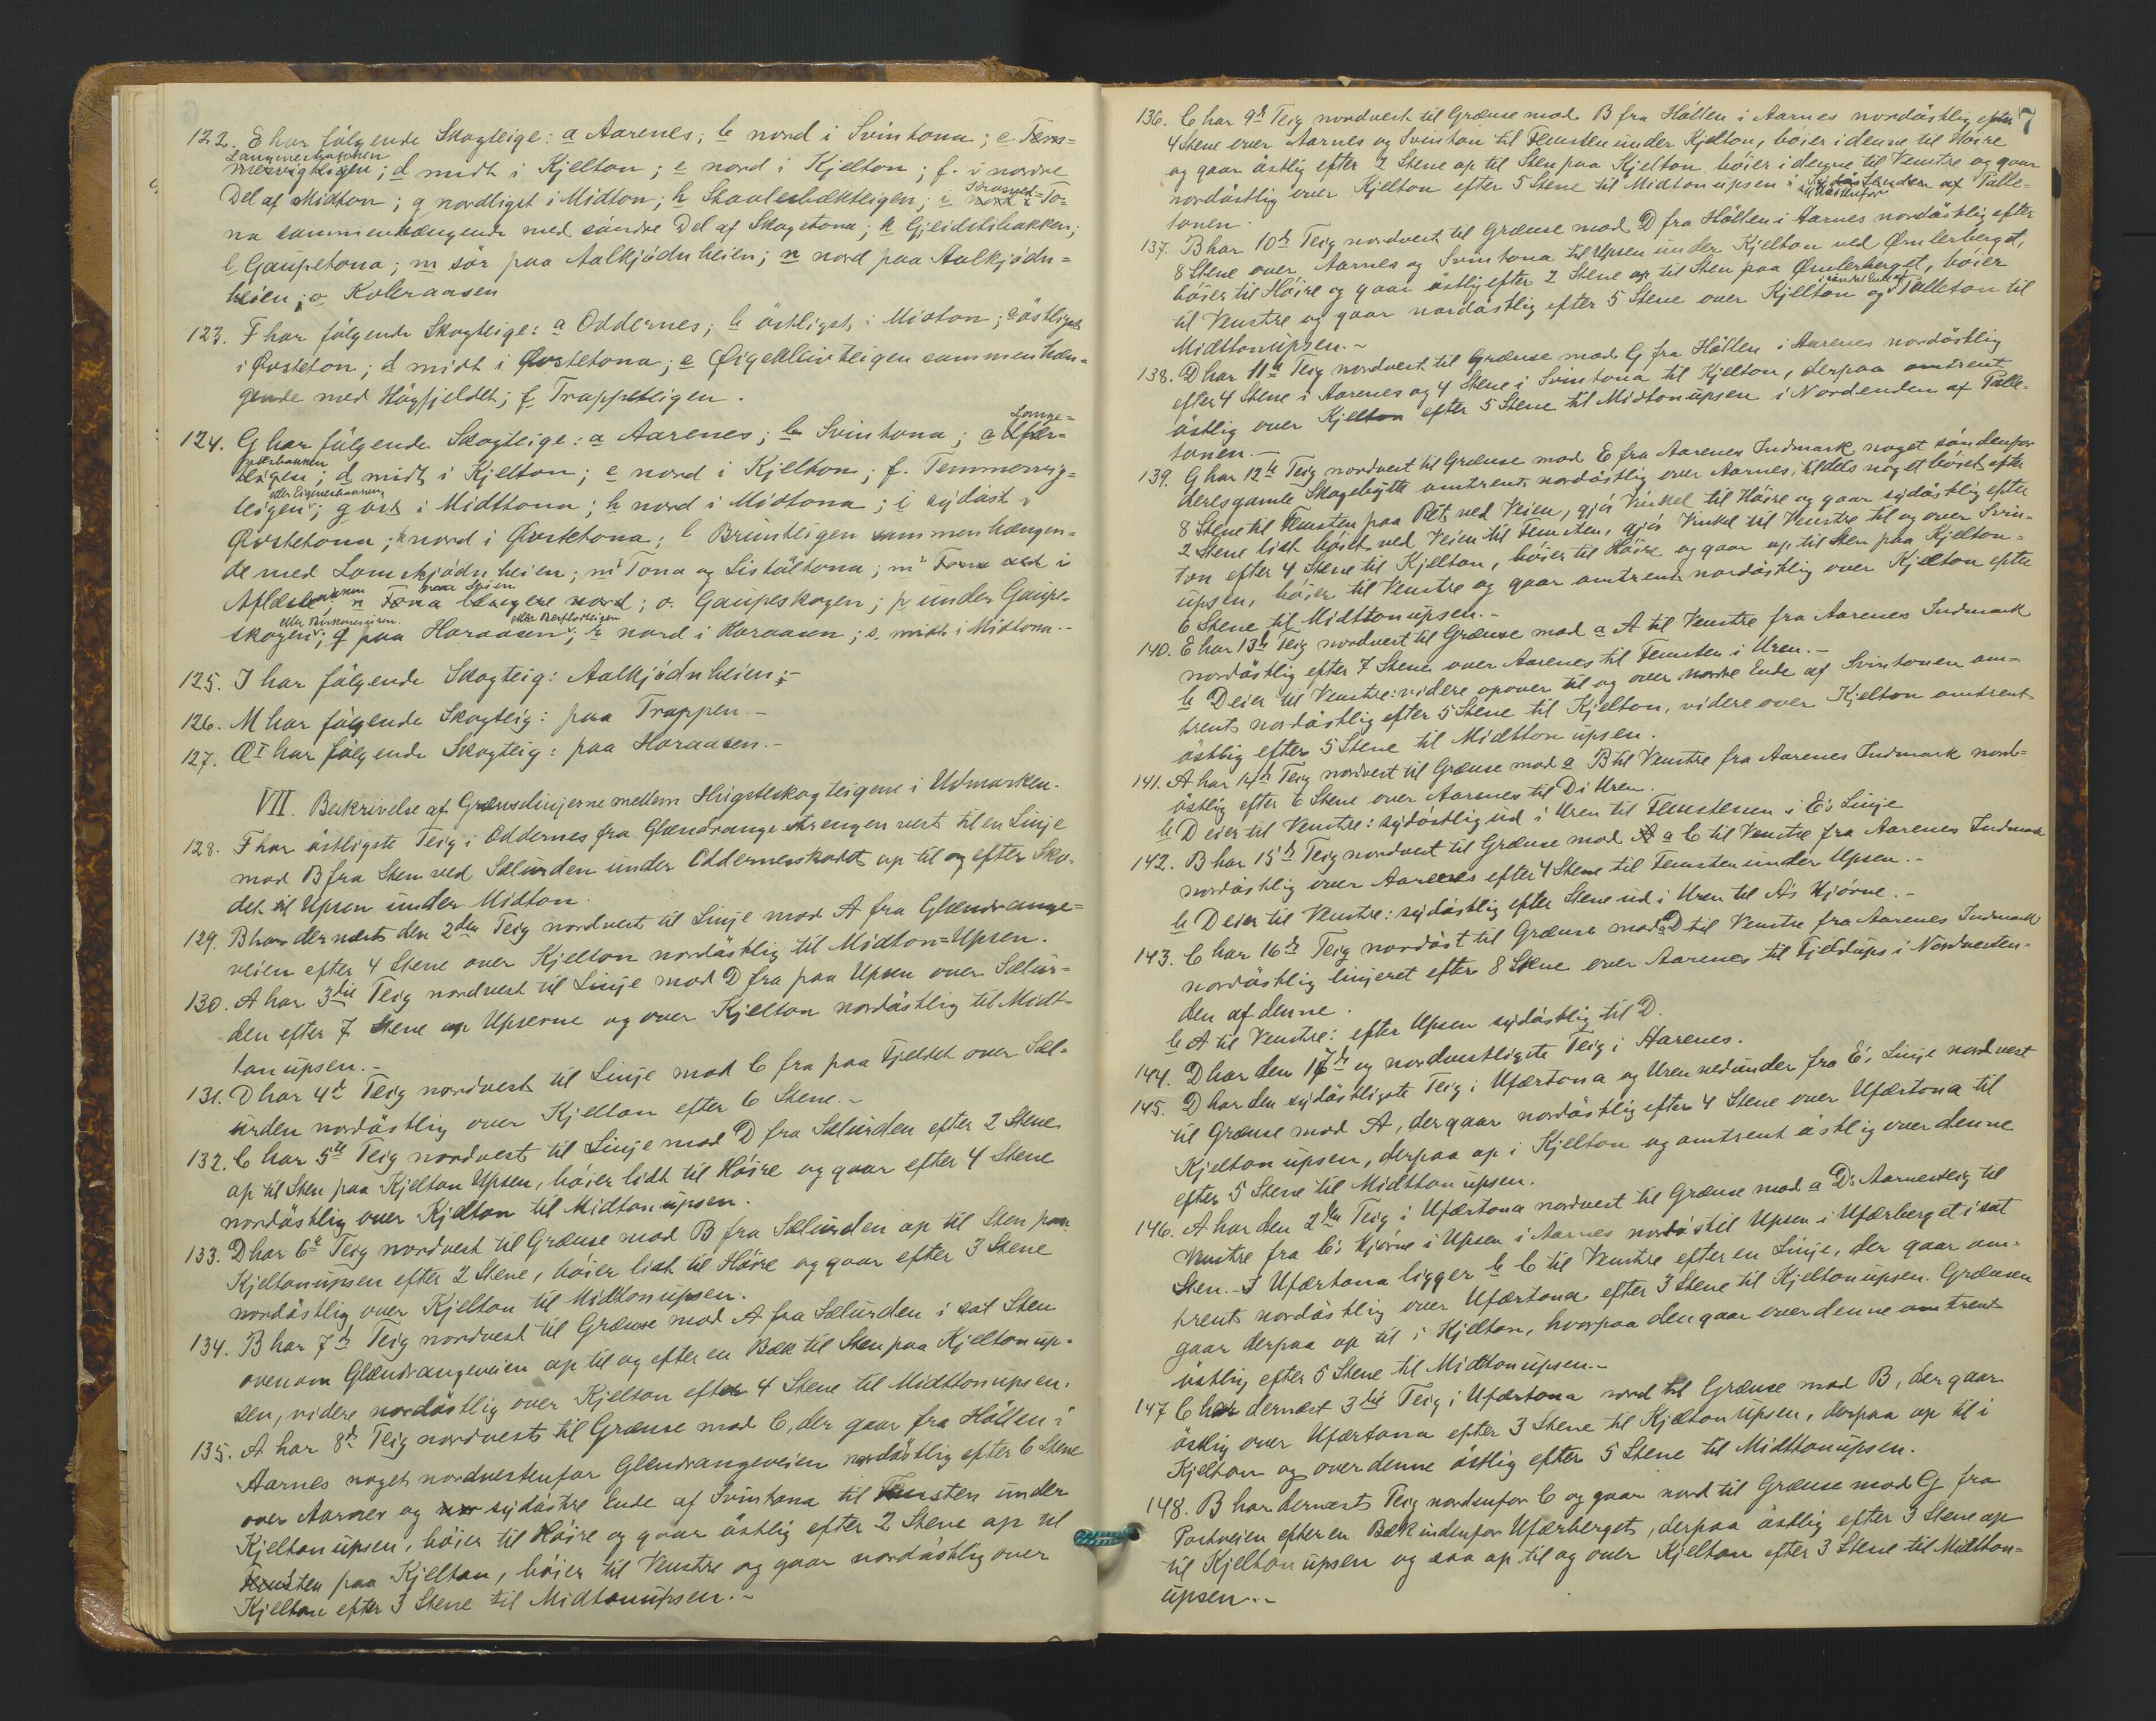 122. E har følgende Skogteige: a Aarenes; b nord i Svintona; c Tem-
Langenesbakken
mervigteigen; d midt i Kjelton; e nord i Kjelton; f. i nordre
Del af Midton; g nordligst i Midton; h Skaalebækteigen; i nord i To-
na sammenhængende med søndre Del af Skogetona; k Gjeidslibakken;
l Gaupetona; m sør paa Aalkjødnheien; n nord paa Aalkjødn-
heien; o Koleraasen
123. F har følgende Skogteige: a Oddernes; b østligst i Midton; c østligst
i Øvsteton; d midt i Øvstetona; e Øigekleivteigen sammenhæn-
gende med Høgfjeldet; f Trappeteigen.
124. G har følgende Skogteige: a Aarenes; b Svintona; c Ufær-
teigen; d midt i Kjelton; e nord i Kjelton; f. Temmervig-
teigen; g øst i Midttona; h nord i Midtona; i sydøst i
Øvstetona; k nord i Øvstetona; l Brunteigen sammenhængen-
de med Lomskjødnheien; m¹ Tona og Listøltona; m² Tona øst i
n Tona længere nord; o. Gaupeskogen; p under Gaupe-
skogen; q paa Horaasen; r nord i Horaasen; s. midt i Midtona.-
125. I har følgende Skogteig: Aalkjødnheien;-
126. M har følgende Skogteig: paa Trappen.-
127. Æ¹ har følgende Skogteig: paa Horaasen.-
VII. Beskrivelse af Grænselinjerne mellem Hugsteskogteigene i Udmarken.
128. F har østligste Teig i Oddernes fra Glændrange Strengen vest til en Linje
mod B fra Sten ved Sælurden under Oddernesskardet op til og efter Ska-
det til Upsen under Midton.
129. B har dernæst den 2den Teig nordvest til Linje mod A fra Glændrange-
veien efter 4 Stene over Kjelton nordøstlig til Midton=Upsen.
130. A har 3die Teig nordvest til Linje mod D fra paa Upsen over Sælur-
den efter 7 Stene op Upserne og over Kjelton nordøstlig til Midt-
tonupsen.-
131. D har 4de Teig nordvest til Linje mod C fra paa Fjeldet over Sæl-
urden nordøstlig over Kjelton efter 6 Stene.-
132. C har 5te Teig nordvest til Linje mod D fra Sælurden efter 2 Stene
op til Sten paa Kjelton Upsen, bøier lidt til Høire og gaar efter 4 Stene
nordøstlig over Kjelton til Midtonupsen.
133. D har 6te Teig nordvest til Grænse mod B fra Sælurden op til Sten paa
Kjeltonupsen efter 2 Stene, bøier lidt til Høire og gaar efter 3 Stene
nordøstlig over Kjelton til Midttonupsen.
134. B har 7de Teig nordvest til Grænse mod A fra Sælurden i sat Sten
ovenom Glændrangeveien op til og efter en Bæk til Sten paa Kjeltonup-
sen, videre nordøstlig over Kjelton efter 4 Stene til Midttonupsen.
135. A har 8de Teig nordvest til Grænse mod C, der gaar fra Hølen i
Aarnes noget nordvestenfor Glendrangeveien nordøstlig efter 6 Stene
over Aarnes og sydøstre Ende af Svintona til Femsten under
Kjeltonupsen, bøier til Høire og gaar østlig efter 2 Stene op til
Femsten paa Kjelton, bøier til Venstre og gaar nordøstlig over
Kjelton efter 3 Stene til Midtonupsen.-
7
136. C har 9de Teig nordvest til Grænse mod B fra Høllen i Aarnes nordøstlig efter
4 Stene over Aarnes og Svinton til Femsten under Kjelton, bøier i denne til Høire
og gaar østlig efter 2 Stene op til Sten paa Kjelton, bøier i denne til Venstre og gaar
nordøstlig over Kjelton efter 5 Stene til Midtonupsen i Sydøstenden af Tolle-
tonen.
137. B har 10de Teig nordvest til Grænse mod D fra Høllen i Aarnes nordøstlig efter
8 Stene over Aarnes og Svintona til Upsen under Kjelton ved Ørnlerberget,
bøier til Høire og gaar østlig efter 2 Stene op til Sten paa Ørnlerberget, bøier
til Venstre og gaar nordøstlig efter 5 Stene over Kjelton og Tolleton til
Midttonupsen.-
138. D har 11te Teig nordvest til Grænse mod G fra Høllen i Aarenes nordøstlig
efter 4 Stene i Aarenes og 4 Stene i Svintona til Kjelton, derpaa omtrent
østlig over Kjelton efter 5 Stene til Midtonupsen i Nordenden af Tolle-
tonen.-
139. G har 12te Teig nordvest til Grænse mod E fra Aarenes Indmark noget søndenfor
deres gamle Skogebytte omtrent nordøstlig over Aarnes, tildels noget bøiet efter
8 Stene til Femsten paa Ret ved Veien, gjør Vinkel til Høire og gaar sydøstlig efter
2 Stene lidt bøiet ved Veien til Femsten, gjør Vinkel til Venstre til og over Svin-
ton efter 4 Stene til Kjelton, bøier til Høire og gaar op til Sten paa Kjelton-
upsen, bøier til Venstre og gaar omtrent nordøstlig over Kjelton efter
6 Stene til Midttonupsen.-
140. E har 13de Teig nordvest til Grænse mod a A til Venstre fra Aarenes Indmark
nordøstlig efter 7 Stene over Aarenes til Femsten i Uren.-
b D eier til Venstre: videre opover til og over nordre Ende af Svintonen om-
trent nordøstlig efter 5 Stene til Kjelton, videre over Kjelton omtrent
østlig efter 5 Stene til Midttonupsen.
141. A har 14de Teig nordvest til Grænse mod a B til Venstre fra Aarenes Indmark nord-
østlig efter 6 Stene over Aarenes til D i Uren.
b D eier til Venstre: sydøstlig ud i Uren til Femstenen i E's Linje
142. B har 15de Teig nordvest til Grænse mod a C til Venstre fra Aarenes Indmark
nordøstlig over Aarenes efter 4 Stene til Femsten under Upsen.-
b D eier til Venstre: sydøstlig efter Stene ud i Uren til A's Hjørne.-
143. C har 16de Teig nordøst til Grænse mod a D til Venstre fra Aarenes Indmark
nordøstlig linjeret efter 8 Stene over Aarenes til Fjeldups i Nordvesten-
den af denne.
b A til Venstre: efter Upsen sydøstlig til D.
144. D har den 17de og nordvestligste Teig i Aarenes.
145. D har den sydøstligste Teig i Ufærtona og Uren nedunder fra E's Linje nordvest
til Grænse mod A, der gaar nordøstlig efter 4 Stene over Ufærtona til
Kjeltonupsen, derpaa op i Kjelton og omtrent østlig over denne
efter 5 Stene til Midttonupsen.
146. A har den 2den Teig i Ufærtona nordvest til Grænse mod a D's Aarnesteig til
Venstre fra C's Hjørne i Upsen i Aarnes nordøst til Upsen i Ufærberget i sat
Sten. - I Ufærtona ligger b C til Venstre efter en Linje, der gaar om-
trent nordøstlig over Ufærtona efter 3 Stene til Kjeltonupsen. Grænsen
gaar derpaa op til i Kjelton, hvorpaa den gaar over denne omtrent
østlig efter 5 Stene til Midttonupsen.-
147 C har dernæst 3die Teig i Ufærtona nord til Grænse mod B, der gaar
østlig over Ufærtona efter 3 Stene til Kjeltonupsen, derpaa op til i
Kjelton og over denne østlig efter 5 Stene til Midttonupsen.
148. B har dernæst Teig nordenfor C og gaar nord til Grænse mod G fra
Postveien efter en Bæk indenfor Ufærberget, derpaa østlig efter 3 Stene op
til Kjeltonupsen og saa op til og over Kjelton efter 3 Stene til Midtton-
upsen.-